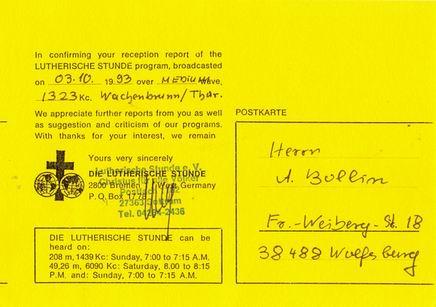 In confirming your reception report of the
LUTHERISCHE STUNDE program, broadcasted
on 03.10. 1993 over MEDIUM Wave,
1323 Kc. Wachenbrunn/Thür.
We appreciate further reports from you as well
as suggestion and criticism of our programs.
With thanks for your interest, we remain
Yours very sincerely
DIE LUTHERISCHE STUNDE
2800 Bremen 77 West Germany
P. O. Box
Lutherische Stunde e. V.
Christus für alle Völker
Postfach
Tel.
DIE LUTHERISCHE STUNDE can be
heard on:
208 m, 1439 Kc: Sunday, 7:00 to 7:15 A.M.
49,26 m, 6090 Kc: Saturday, 8.00 to 8:15
P.M. and: Sunday, 7:00 to 7:15 A.M.
POSTKARTE
Herrn
A. Bollin
Fr.-Weiberg-St. 18
38488 Wolfsburg